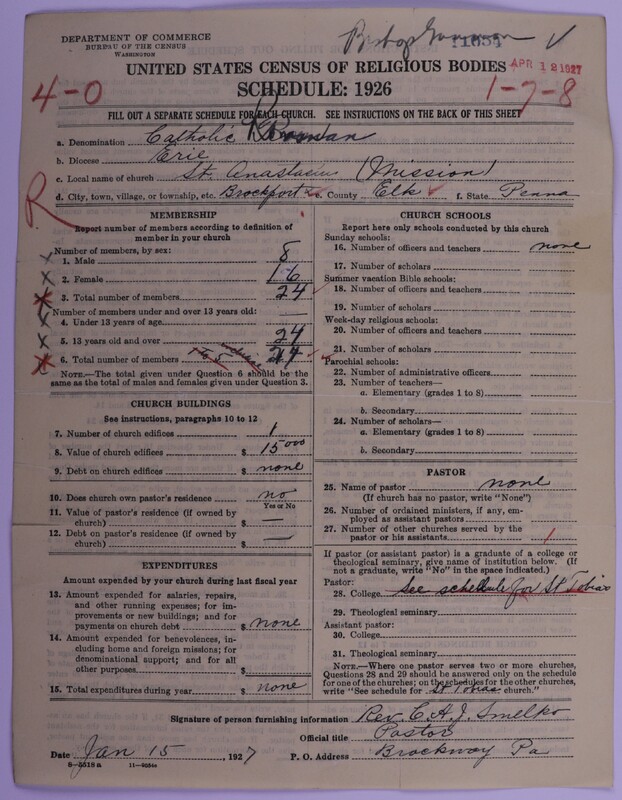 DEPARTMENT OF COMMERCE
BUREAU OF THE CENSUS
WASHINGTON
Bishop
11654
UNITED STATES CENSUS OF RELIGIOUS BODIES
APR 12 1927
4-0
SCHEDULE: 1926
1-7-8
FILL OUT A SEPARATE SCHEDULE FOR EACH CHURCH. SEE INSTRUCTIONS ON THE BACK OF THIS SHEET
a. Denomination Catholic Roman
b. Diocese Erie
c. Local name of church St. Anastasius (Mission)
d. City, town, village, or township, etc. Brockport e. County Elk f. State Penna
R
MEMBERSHIP
Report number of members according to definition of member in your church
Number of members, by sex:
1. Male 8
2. Female 16
3. Total number of members 24
Number of members under and over 13 years old:
4. Under 13 years of age —
5. 13 years old and over 24
6. Total number of members 24
NOTE.—The total given under Question 6 should be the
same as the total of males and females given under Question 3.
CHURCH BUILDINGS
See instructions, paragraphs 10 to 12
7. Number of church edifices 1
8. Value of church edifices $ 1500
9. Debt on church edifices $ none
10. Does church own pastor's residence no
Yes or No
11. Value of pastor's residence (if owned by
church) $ —
12. Debt on pastor's residence (if owned by
church) $ —
EXPENDITURES
Amount expended by your church during last fiscal year
13. Amount expended for salaries, repairs,
and other running expenses; for im-
provements or new buildings; and for
payments on church debt $ none
14. Amount expended for benevolences,
including home and foreign missions; for
denominational support; and for all
other purposes $
15. Total expenditures during year $ none
CHURCH SCHOOLS
Report here only schools conducted by this church
Sunday schools:
16. Number of officers and teachers none
17. Number of scholars
Summer vacation Bible schools:
18. Number of officers and teachers
19. Number of scholars
Week-day religious schools:
20. Number of officers and teachers
21. Number of scholars
Parochial schools:
22. Number of administrative officers
23. Number of teachers—
a. Elementary (grades 1 to 8)
b. Secondary
24. Number of scholars—
a. Elementary (grades 1 to 8)
b. Secondary
PASTOR
25. Name of pastor none
(If church has no pastor, write "None")
26. Number of ordained ministers, if any, em-
ployed as assistant pastors
27. Number of other churches served by the
pastor or his assistants 1
If pastor (or assistant pastor) is a graduate of a college or
theological seminary, give name of institution below. (If
not a graduate, write "No" in the space indicated.)
Pastor:
28. College See schedule for St Tobias
29. Theological seminary
Assistant pastor:
30. College
31. Theological seminary
NOTE.—Where one pastor serves two or more churches,
Questions 28 and 29 should be answered only on the schedule
for one of the churches; on the schedules for the other churches,
write "See schedule for St Tobias church."
Signature of person furnishing information Rev. C. A. J. Smelko
Official title Pastor
Date Jan 15, 1927 P. O. Address Brockway Pa
8-5518 a